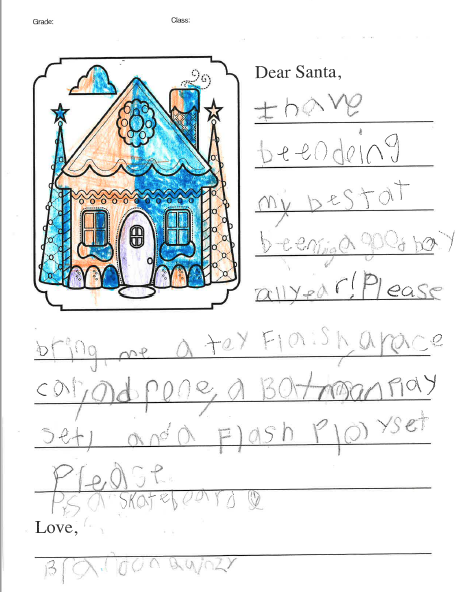 Grade:
Class:
Dear Santa,
I have
beendoing
my best at
beeninga good bay
allyear! Please
bring me a tey Flaish, arace
car, and fone, a Batman Play
set, and a Flash Ployset
Please
P.s a skateboard
Love,